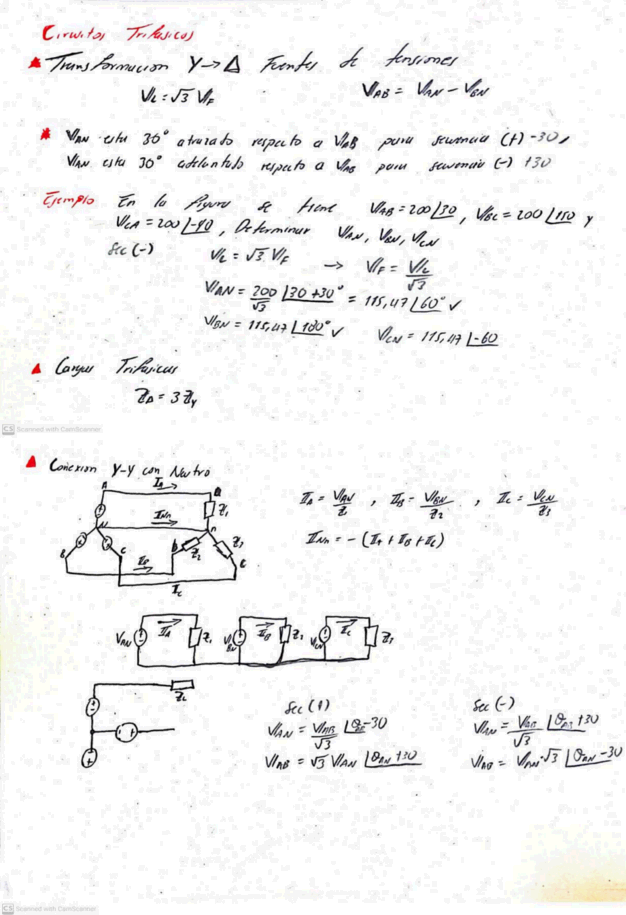 Circuitos Trifasicos
Transformacion Y→Δ Fuentes de tensiones
VL = √3 VF
VAB = VAN - VBN
VAN esta 30° atrazado respecto a VAB para secuencia (+) -30,
VAN esta 30° adelantado respecto a VAB para secuencia (-) +30
Ejemplo En la figura se tiene VAB = 200∠30, VBC = 200∠150 y
VCA = 200∠-90, Determinar VAN, VBN, VCN
Sec (-) VL = √3 VF → VF = VL/√3
VAN = 200/√3 ∠30+30° = 115,47∠60° ✓
VBN = 115,47∠180° ✓ VCN = 115,47∠-60
Cargas Trifasicas
ZΔ = 3ZY
CS Scanned with CamScanner
Conexion Y-Y con Neutro
A IA a
Z1
N INn n
B C IB b Z2 Z3 c
IC
IA = VAN/Z1, IB = VBN/Z2, IC = VCN/Z3
INn = -(IA + IB + IC)
VAN IA Z1 VBN IB Z2 VCN IC Z3
ZL
Sec (+)
VAN = VAB/√3 ∠θAB-30
VAB = √3 VAN ∠θAN+30
Sec (-)
VAN = VAB/√3 ∠θAB+30
VAB = VAN·√3 ∠θAN-30
CS Scanned with CamScanner